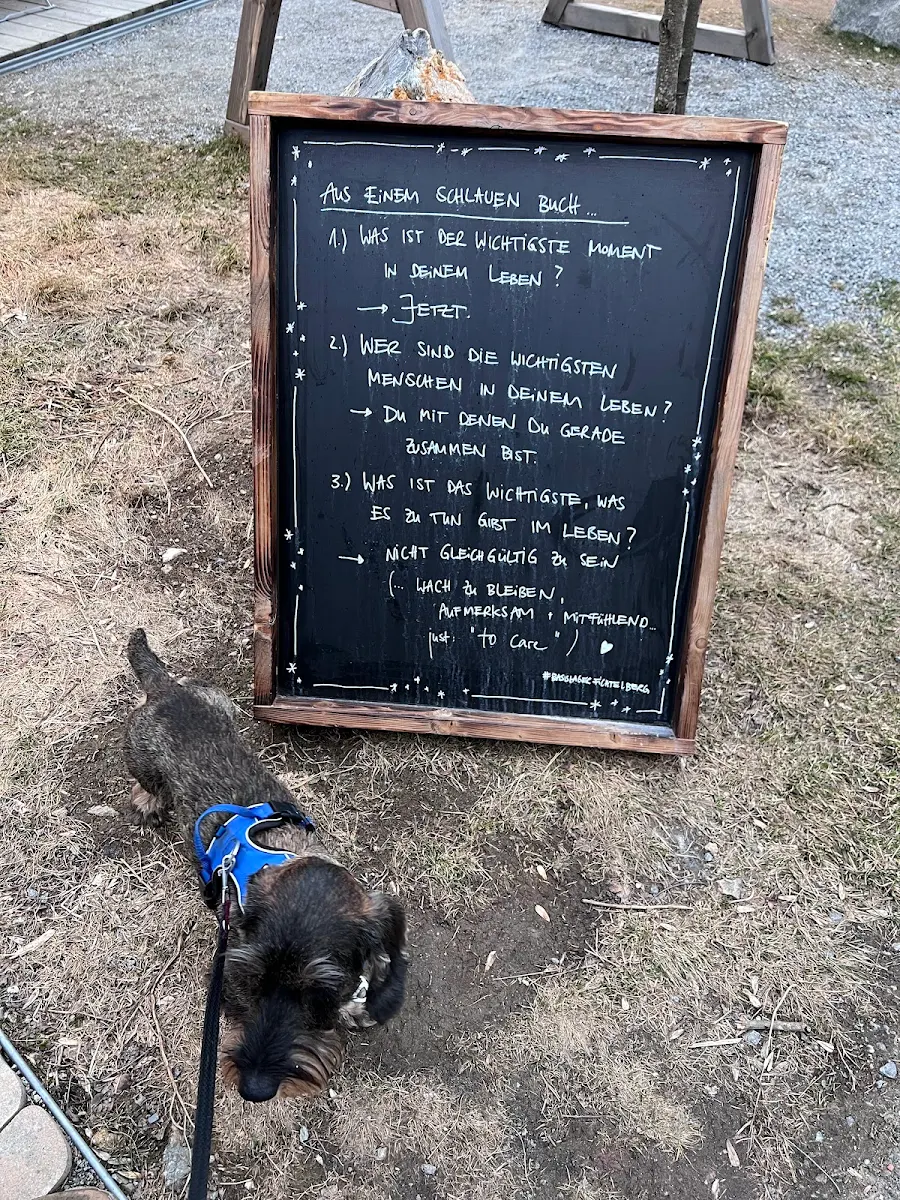 AUS EINEM SCHLAUEN BUCH...
1.) WAS IST DER WICHTIGSTE MOMENT
IN DEINEM LEBEN?
→ JETZT.
2.) WER SIND DIE WICHTIGSTEN
MENSCHEN IN DEINEM LEBEN?
→ DU MIT DENEN DU GERADE
ZUSAMMEN BIST.
3.) WAS IST DAS WICHTIGSTE, WAS
ES ZU TUN GIBT IM LEBEN?
→ NICHT GLEICHGÜLTIG ZU SEIN
(... WACH ZU BLEIBEN,
AUFMERKSAM + MITFÜHLEND...
just: "to care") ♥